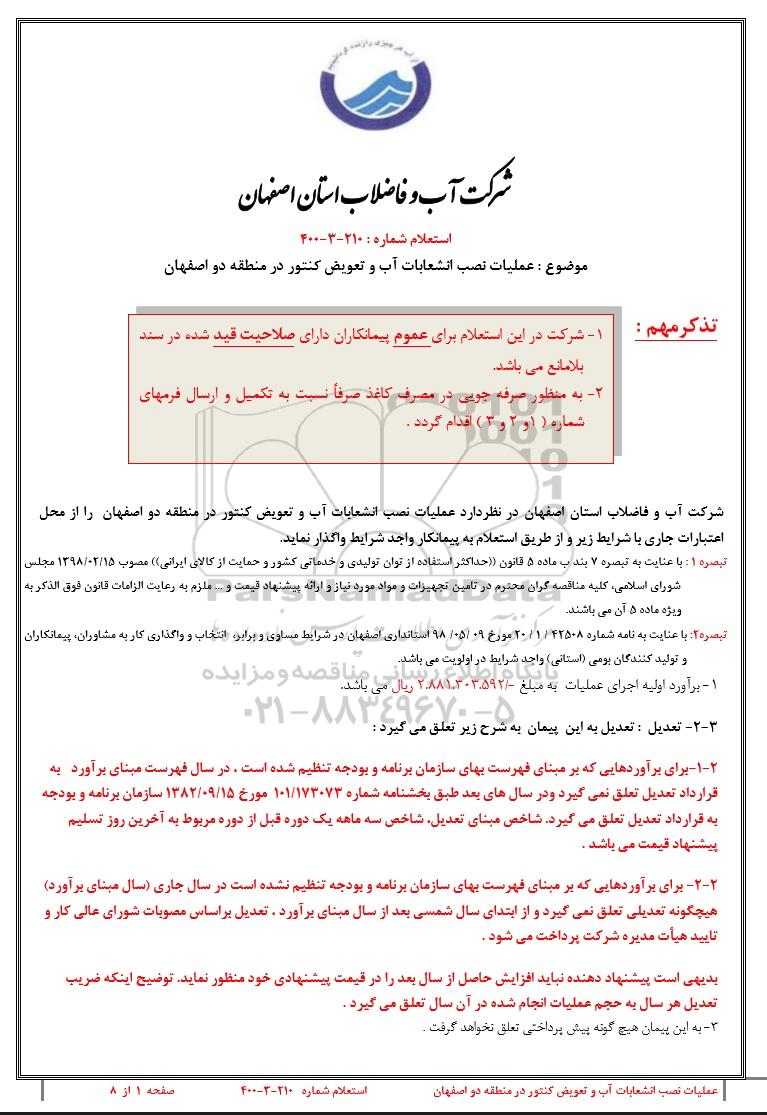 شرکت آب و فاضلاب استان اصفهان
استعلام شماره : ۲۱۰-۳-۴۰۰
موضوع : عملیات نصب انشعابات آب و تعویض کنتور در منطقه دو اصفهان
تذکرمهم :
۱- شرکت در این استعلام برای عموم پیمانکاران دارای صلاحیت قید شده در سند
بلامانع می باشد.
۲- به منظور صرفه جویی در مصرف کاغذ صرفاً نسبت به تکمیل و ارسال فرمهای
شماره ( ۱و ۲ و ۳ ) اقدام گردد .
شرکت آب و فاضلاب استان اصفهان در نظردارد عملیات نصب انشعابات آب و تعویض کنتور در منطقه دو اصفهان را از محل
اعتبارات جاری با شرایط زیر و از طریق استعلام به پیمانکار واجد شرایط واگذار نماید.
تبصره ۱ : با عنایت به تبصره ۷ بند ب ماده ۵ قانون ((حداکثر استفاده از توان تولیدی و خدماتی کشور و حمایت از کالای ایرانی)) مصوب ۱۳۹۸/۰۲/۱۵ مجلس
شورای اسلامی، کلیه مناقصه گران محترم در تامین تجهیزات و مواد مورد نیاز و ارائه پیشنهاد قیمت و ... ملزم به رعایت الزامات قانون فوق الذکر به
ویژه ماده ۵ آن می باشند.
تبصره۲: با عنایت به نامه شماره ۴۲۵۰۸ / ۱ / ۲۰ مورخ ۰۹ /۰۵ /۹۸ استانداری اصفهان در شرایط مساوی و برابر، انتخاب و واگذاری کار به مشاوران، پیمانکاران
و تولید کنندگان بومی (استانی) واجد شرایط در اولویت می باشد.
۱- برآورد اولیه اجرای عملیات به مبلغ -/۲.۸۸۱.۳۰۳.۵۹۲ ریال می باشد.
۳-۲- تعدیل : تعدیل به این پیمان به شرح زیر تعلق می گیرد :
۲-۱-برای برآوردهایی که بر مبنای فهرست بهای سازمان برنامه و بودجه تنظیم شده است ، در سال فهرست مبنای برآورد به
قرارداد تعدیل تعلق نمی گیرد ودر سال های بعد طبق بخشنامه شماره ۱۰۱/۱۷۳۰۷۳ مورخ ۱۳۸۲/۰۹/۱۵ سازمان برنامه و بودجه
به قرارداد تعدیل تعلق می گیرد. شاخص مبنای تعدیل، شاخص سه ماهه یک دوره قبل از دوره مربوط به آخرین روز تسلیم
پیشنهاد قیمت می باشد .
۲-۲- برای برآوردهایی که بر مبنای فهرست بهای سازمان برنامه و بودجه تنظیم نشده است در سال جاری (سال مبنای برآورد)
هیچگونه تعدیلی تعلق نمی گیرد و از ابتدای سال شمسی بعد از سال مبنای برآورد ، تعدیل براساس مصوبات شورای عالی کار و
تایید هیأت مدیره شرکت پرداخت می شود .
بدیهی است پیشنهاد دهنده نباید افزایش حاصل از سال بعد را در قیمت پیشنهادی خود منظور نماید. توضیح اینکه ضریب
تعدیل هر سال به حجم عملیات انجام شده در آن سال تعلق می گیرد .
۳-به این پیمان هیچ گونه پیش پرداختی تعلق نخواهد گرفت .
ParsNamadData
پایگاه اطلاع رسانی مناقصه و مزایده
۰۲۱-۸۸۳۴۹۶۷۰-۵
عملیات نصب انشعابات آب و تعویض کنتور در منطقه دو اصفهان استعلام شماره ۲۱۰-۳-۴۰۰ صفحه ۱ از ۸